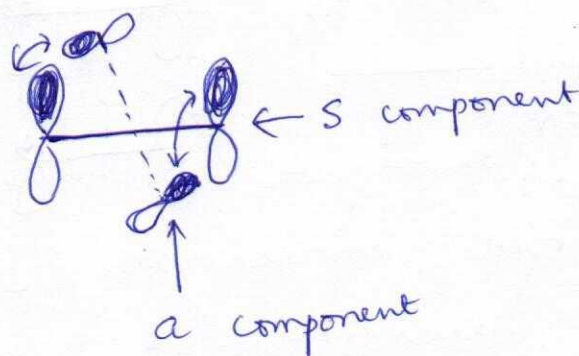 ← s component
a component